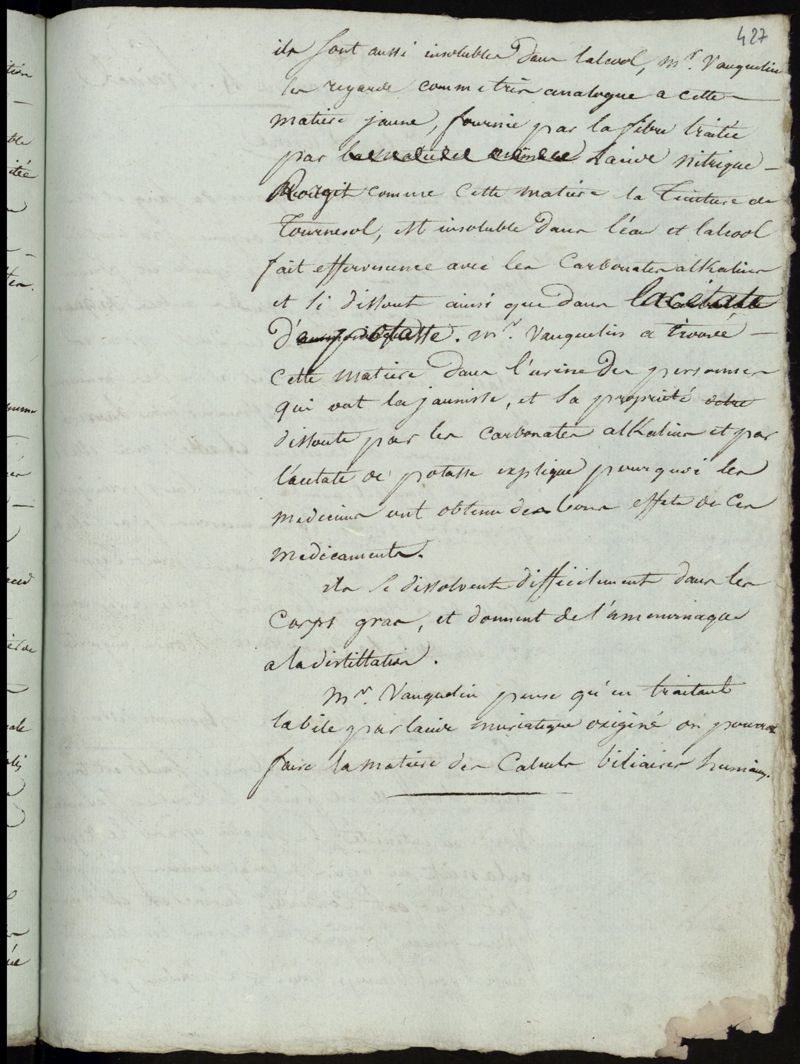 427
ils sont aussi insolubles dans lalcool, Mr. Vauquelin
les regarde comme très analogue a cette
matiere jaune, fournie par la fibre traitée
par Lacide nitrique
Rougit comme cette matiere la Teinture de
Tournesol, est insoluble dans l'eau et lalcool
fait effervescence avec les Carbonates alkalins
et si dissout ainsi que dans lacétate
de potasse. Mr. Vauquelin a trouvé
cette matiere dans l'urine des personnes
qui ont la jaunisse, et sa propriété
dissoute par les carbonates alkalins et par
l'acetate de potasse explique pourquoi les
medecins ont obtenu des bons effets de ces
medicaments.
ils se dissolvent difficilement dans les
Corps gras, et donnent de l'ammoniaque
a la distillation.
Mr. Vauquelin pense qu'en traitant
la bile par lacide muriatique oxigené on pourra
faire la matiere des Calculs biliaires humains.